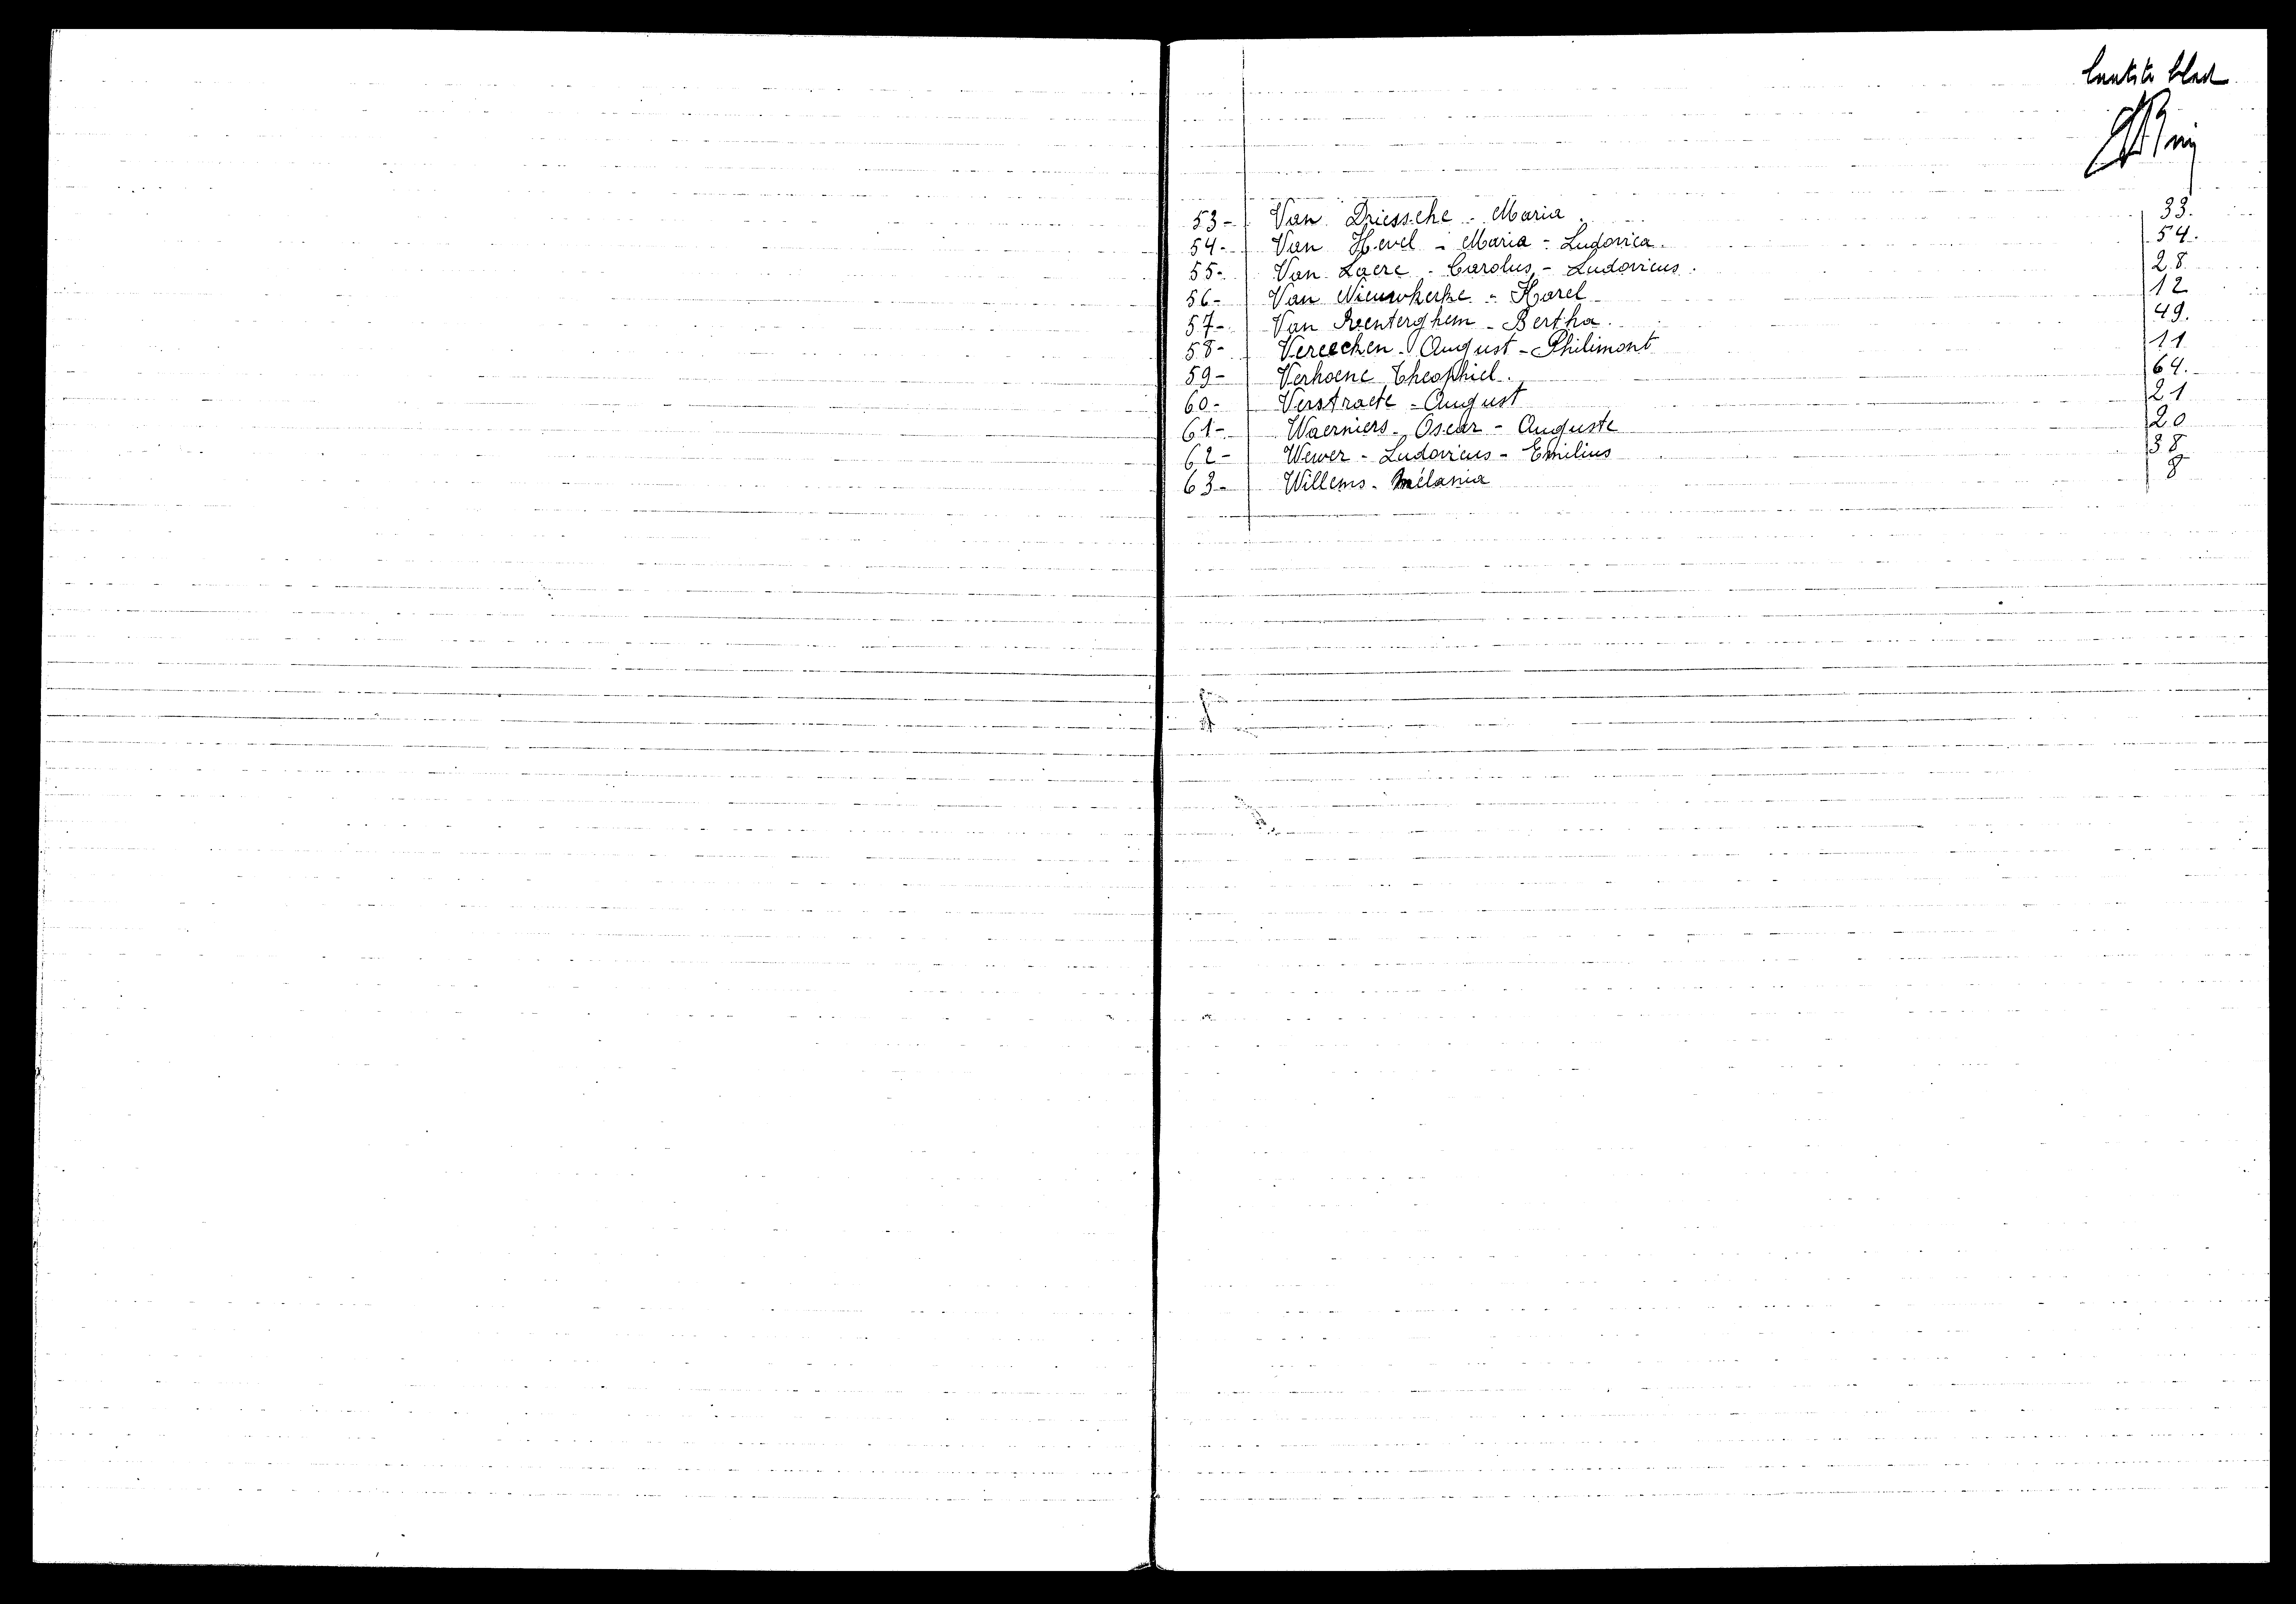 laatste blad
53- Van Driessche - Maria. 33.
54- Van Hevel - Maria - Ludovica. 54.
55- Van Laere - Carolus - Ludovicus. 28
56- Van Nieuwkerke - Karel 12
57- Van Renterghem - Bertha. 49.
58- Vereecken - August - Philimont 11
59- Verhoene Theophiel. 64.
60- Verstraete - August 21
61- Waerniers - Oscar - Auguste 20
62- Wewer - Ludovicus - Emilius 38
63- Willems - Mélania 8